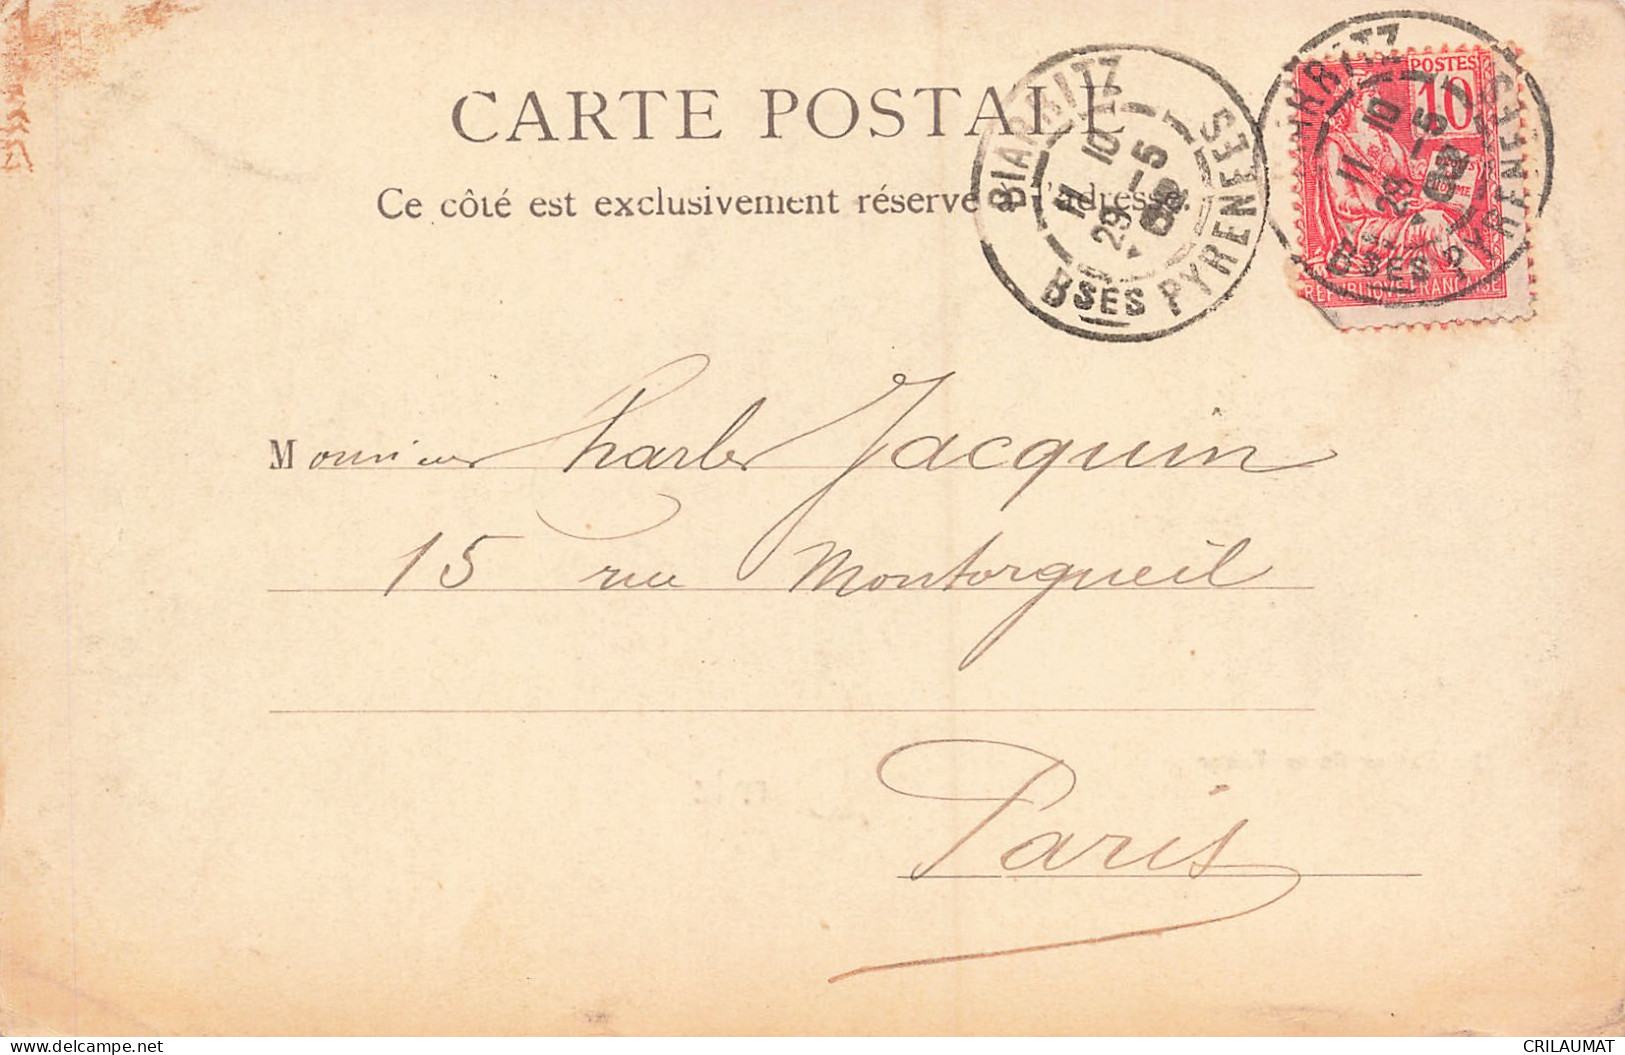 CARTE POSTALE
Ce côté est exclusivement réservé à l'adresse.
BIARRITZ
11 10
29 -5
02
BSES PYRENEES
POSTES
10
REPUBLIQUE FRANCAISE
BIARRITZ
11 10
29 -5
BSES PYRENEES
Monsieur Charles Jacquin
15 rue Montorgueil
Paris
CRILAUMAT